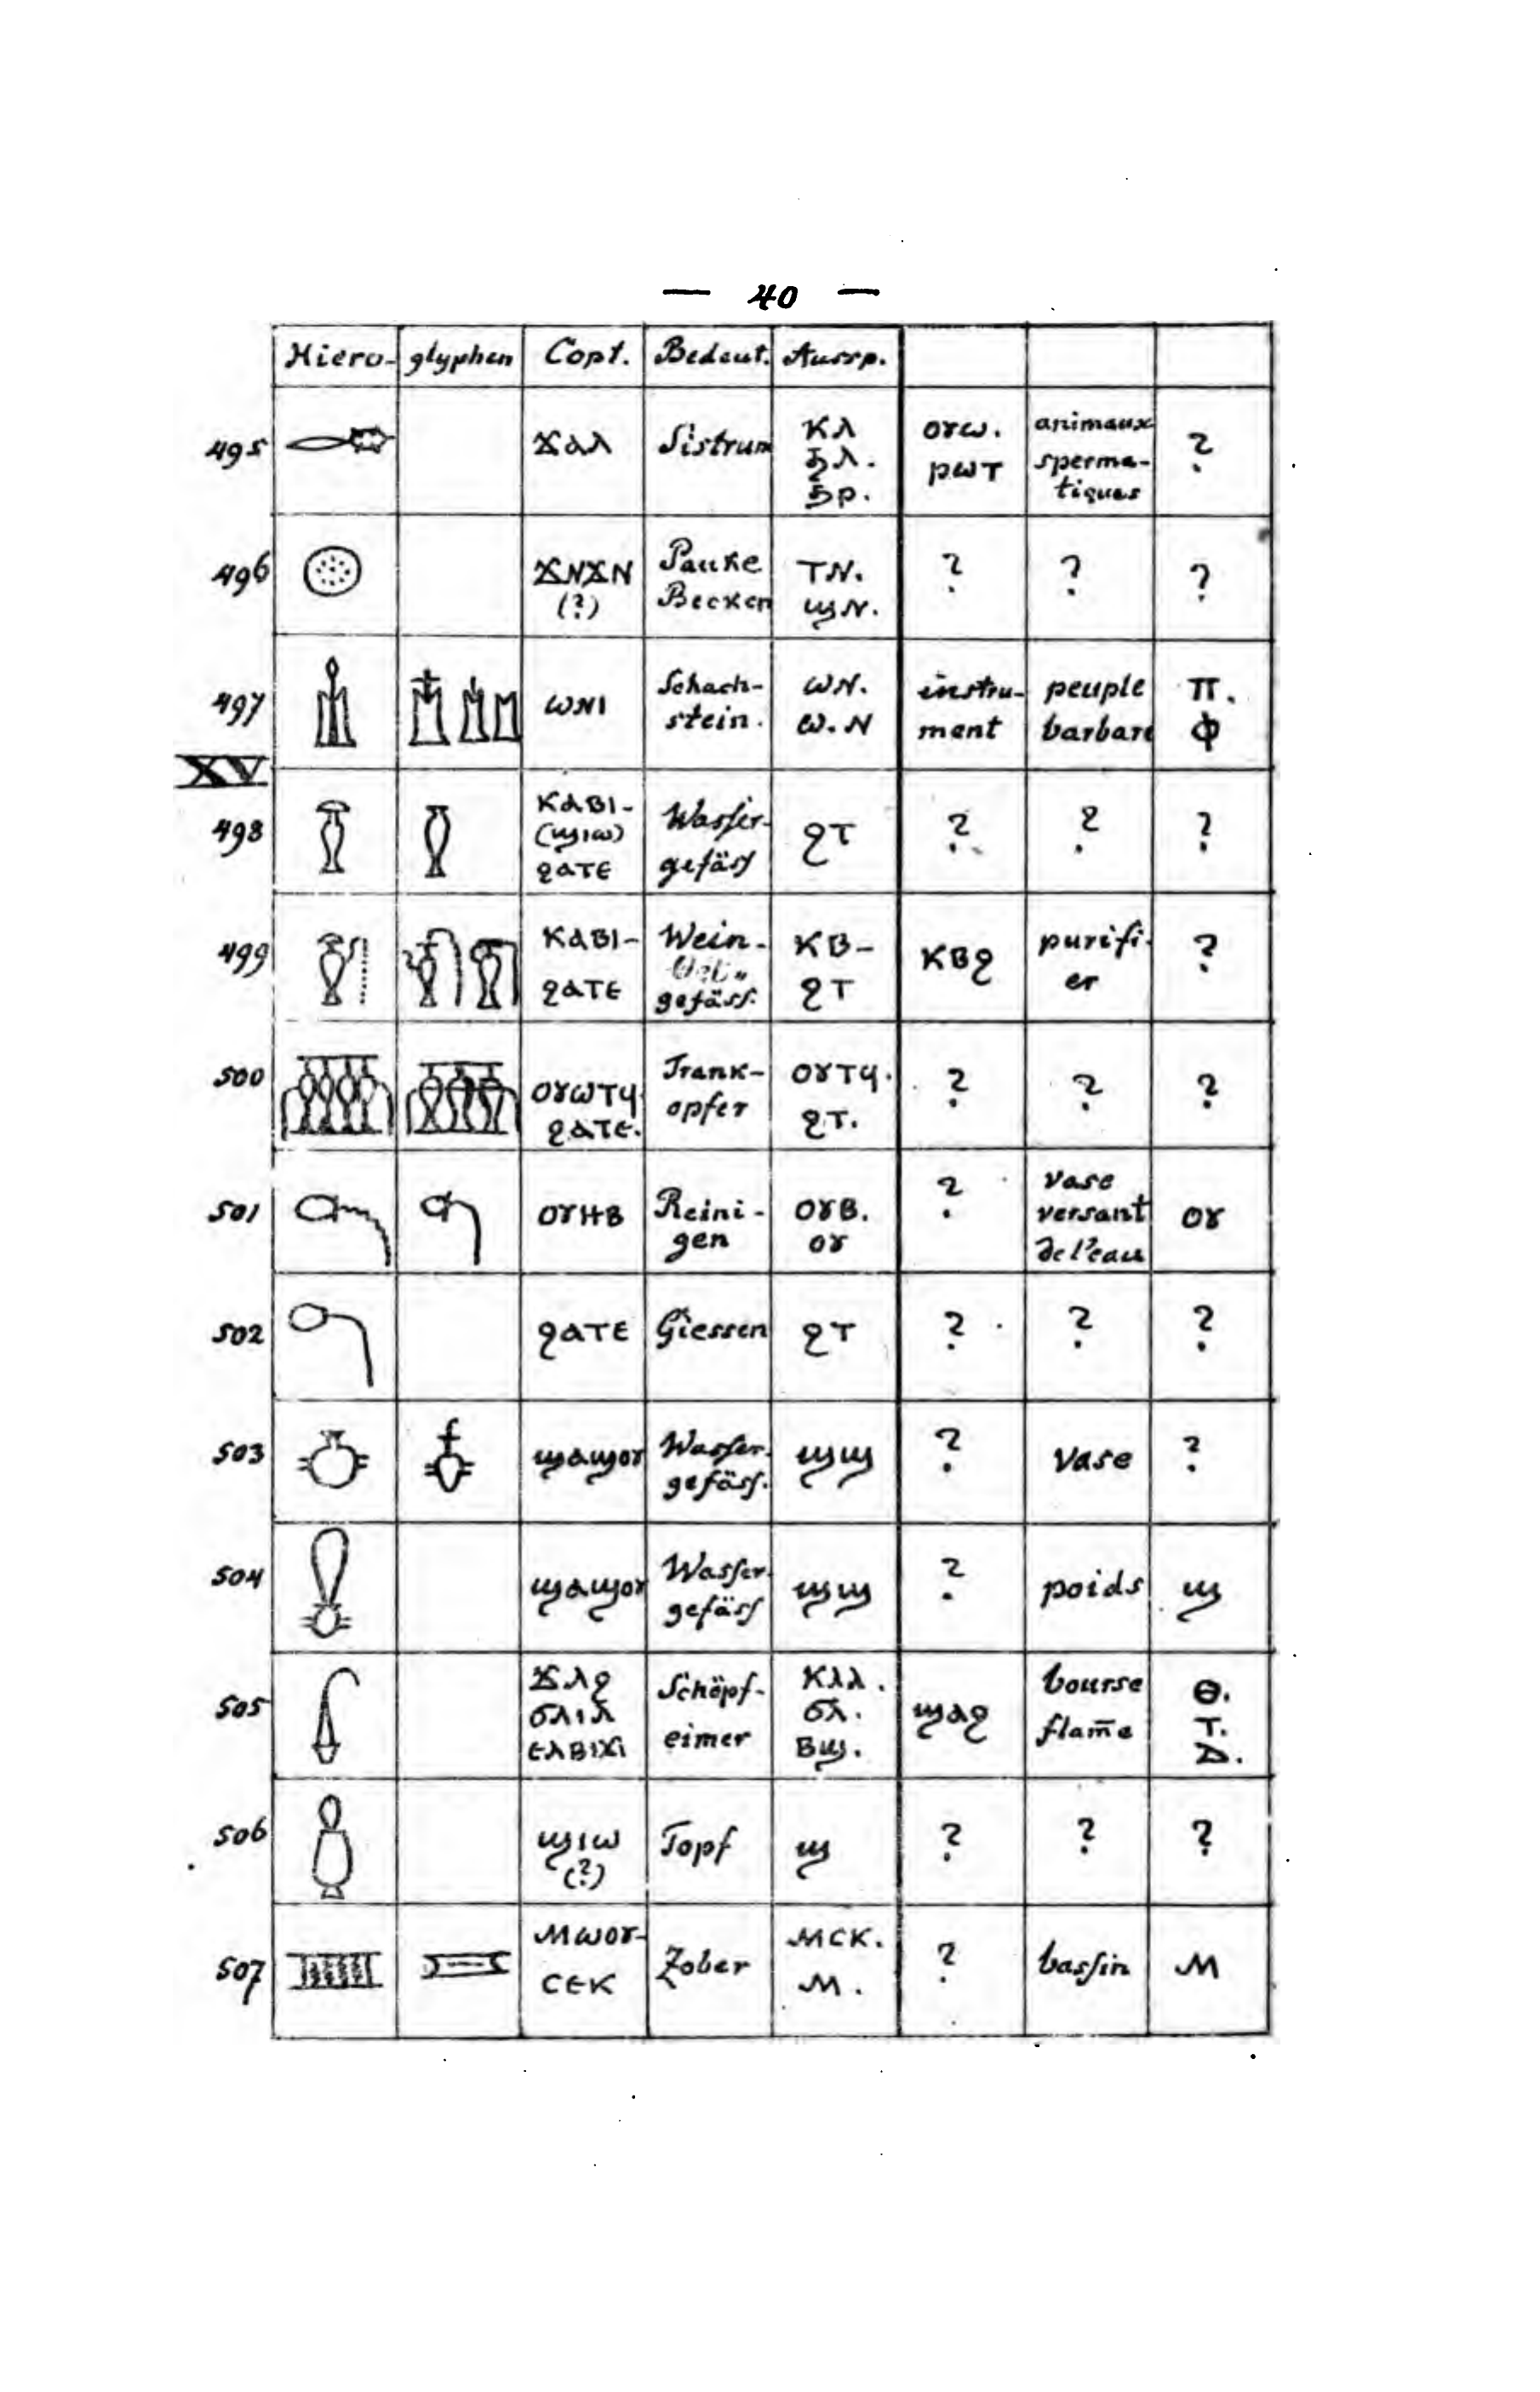 — 40 —
Hiero- glyphen Copt. Bedeut. Aussp.
495 ϪⲀⲖ Sistrum ⲔⲖ ϦⲖ. ϦⲢ. ⲞⲨⲰ. ⲢⲰⲦ animaux sperma- tiques ?
496 ϪⲚϪⲚ (?) Pauke Becken ⲦⲚ. ϢⲚ. ? ? ?
497 ⲰⲚⲒ Schach- stein. ⲰⲚ. Ⲱ.Ⲛ instru- ment peuple barbare Ⲡ. Ⲫ
XV
498 ⲔⲀⲂⲒ- (ϢⲒⲰ) ϨⲀⲦⲈ Wasser- gefäss ϨⲦ ? ? ?
499 ⲔⲀⲂⲒ- ϨⲀⲦⲈ Wein- gefäss. ⲔⲂ- ϨⲦ ⲔⲂϨ purifi- er ?
500 ⲞⲨⲰⲦϤ. ϨⲀⲦⲈ. Trank- opfer ⲞⲨⲦϤ. ϨⲦ. ? ? ?
501 ⲞⲨⲎⲂ Reini- gen ⲞⲨⲂ. ⲞⲨ ? vase versant de l'eau ⲞⲨ
502 ϨⲀⲦⲈ Giessen ϨⲦ ? ? ?
503 ϢⲀϢⲞⲨ Wasser- gefäss. ϢϢ ? vase ?
504 ϢⲀϢⲞⲨ Wasser- gefäss ϢϢ ? poids Ϣ
505 ϪⲖϨ ϬⲖⲒⲖ ⲈⲖⲂⲒϪⲒ Schöpf- eimer ⲔⲖⲖ. ϬⲖ. ⲂϢ. ϢⲀϨ bourse flam̄e Ⲑ. Ⲧ. Ⲇ.
506 ϢⲒⲰ (?) Topf Ϣ ? ? ?
507 ⲘⲰⲞⲨ- ⲤⲈⲔ Zober ⲘⲤⲔ. Ⲙ. ? bassin Ⲙ